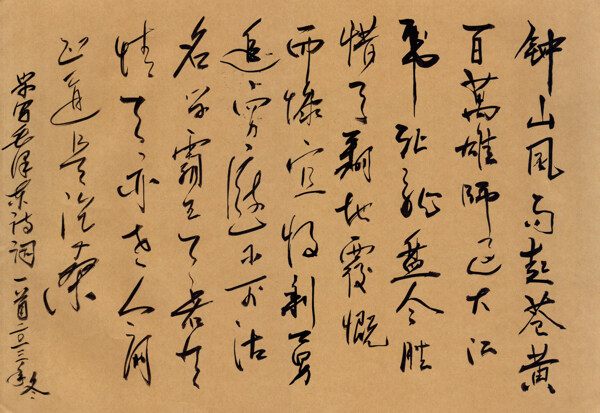 钟山风雨起苍黄
百萬雄師过大江
虎踞龙盘今胜
惜天翻地覆慨
而慷宜将剩勇
追穷寇不可沽
名学霸王天若有
情天亦老人间
正道是沧桑
写毛泽东诗词一首年冬